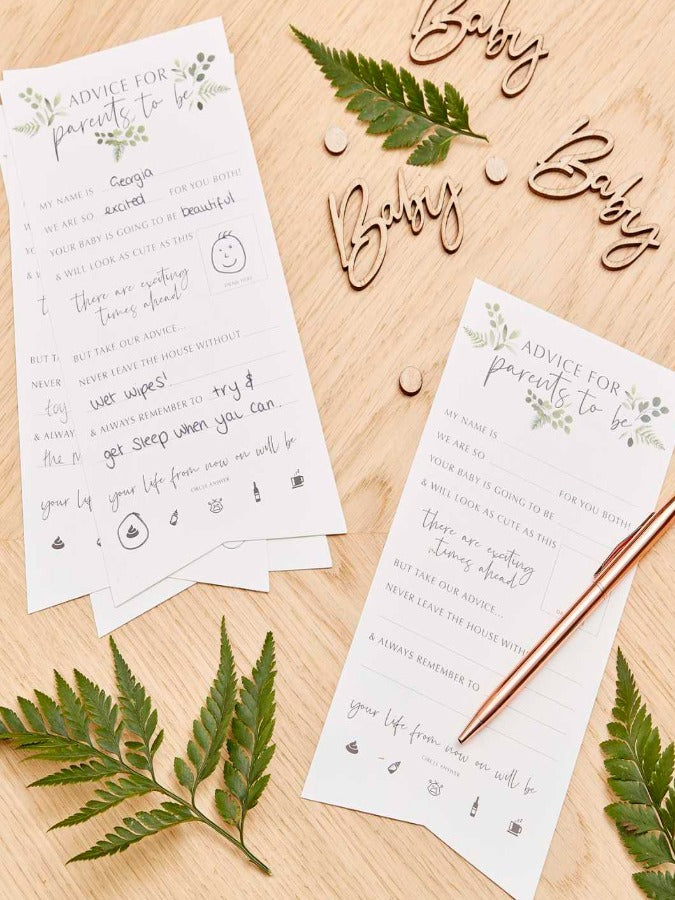 Baby
Baby
Baby
ADVICE FOR
parents to be
MY NAME IS Georgia
WE ARE SO excited FOR YOU BOTH!
YOUR BABY IS GOING TO BE beautiful
& WILL LOOK AS CUTE AS THIS
there are exciting
times ahead
BUT TAKE OUR ADVICE...
NEVER LEAVE THE HOUSE WITHOUT
wet wipes!
& ALWAYS REMEMBER TO try &
get sleep when you can
your life from now on will be
CIRCLE ANSWER
BUT
NEVER
toy
& ALWAYS
the
your life
ADVICE FOR
parents to be
MY NAME IS
WE ARE SO
FOR YOU BOTH!
YOUR BABY IS GOING TO BE
& WILL LOOK AS CUTE AS THIS
there are exciting
times ahead
BUT TAKE OUR ADVICE...
NEVER LEAVE THE HOUSE WITH
& ALWAYS REMEMBER TO
your life from now on will be
CIRCLE ANSWER